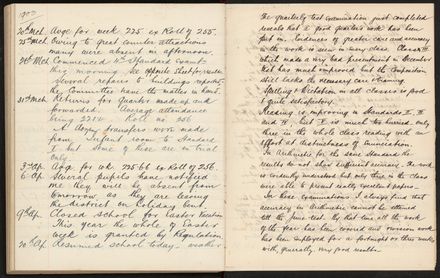 1900
20th Mch. Avge for week 225 ex Roll of 255.
23rd Mch. Owing to great counter attractions
many were absent in afternoon.
26th Mch. Commenced 4th Standard Exams
this morning. See opposite sheet for results
Several repairs to buildings reported
the Committee have the matter in hand.
31st Mch. Returns for Quarter made up and
forwarded. Average attendance
being 221.4 Roll no. 256
A few transfers were made
from Infant room to Standard
I. but some of these are on trial
only.
3rd Ap. Avge for wk. 225.66 ex Roll of 256.
6 Ap. Several pupils have notified
me they will be absent from
tomorrow as they are leaving
the district on holiday bent
9th Ap. Closed school for Easter Vacation
This year the whole of Easter
week is granted by Regulation
20th Ap. Resumed school today - weather
The quarterly test examination just completed
reveals that a good quarter's work has been
put in. Evidences of greater care and accuracy
in the work is seen in every class. Class III
which made a very bad presentment in December
test has much improved but the Composition
still lacks the necessary care & training.
Spelling & Dictation in all classes is good
& quite satisfactory.
Reading is improving in Standards II, V
and VI, but V is much too hurried only
three in the whole class reading with an
effort at distinctness of enunciation.
In Arithmetic for the same standard the
results do not show sufficient accuracy. The work
is evidently understood but only three in the class
were able to present really excellent papers.
In these examinations I always find that
accuracy in Arithmetic cannot be attained
till the June test. By that time all the work
of the year has been covered and revision work
has been employed for a fortnight or three weeks
with generally very good results.